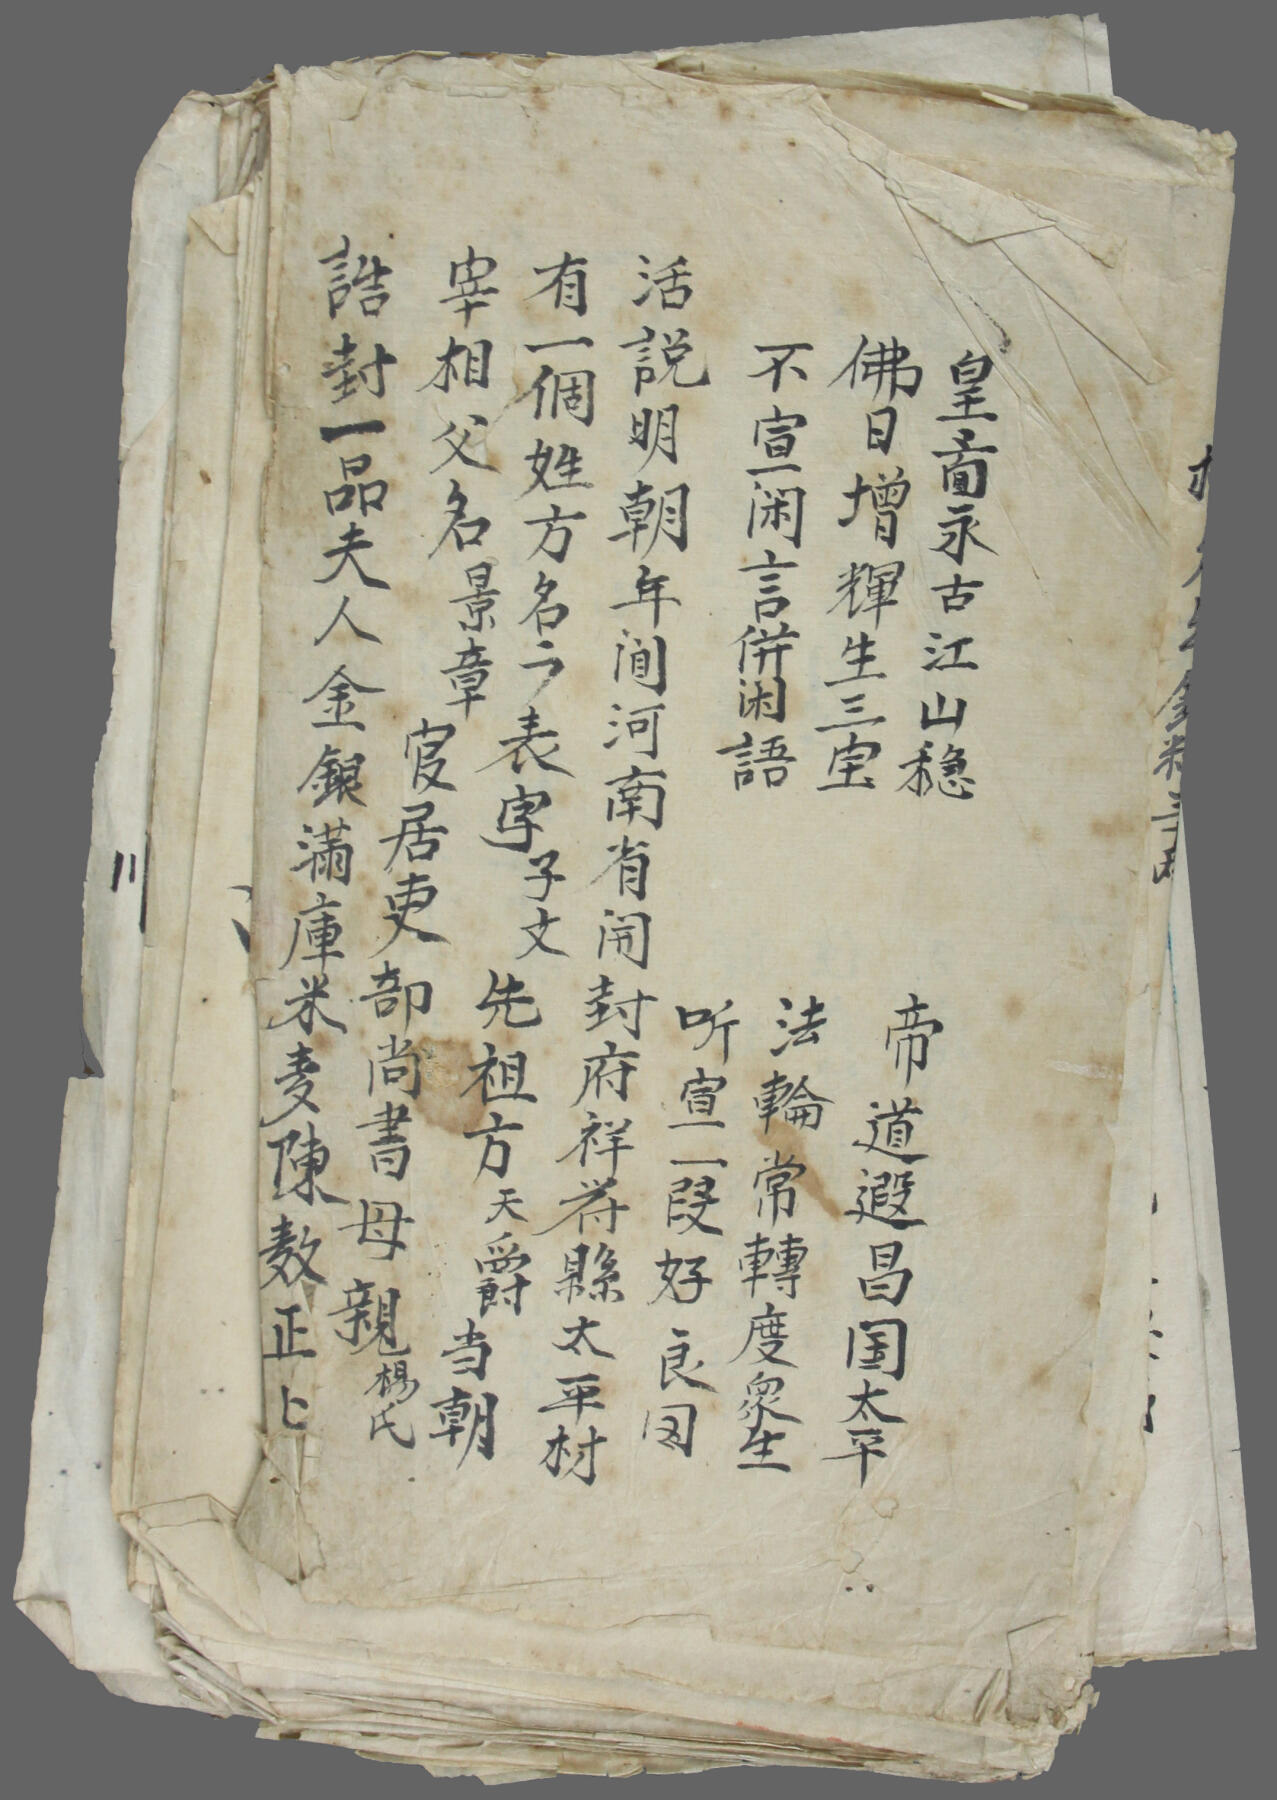 皇啚永古江山穏　帝道遐昌国太平
佛日增輝生三宝　法輪常轉度衆生
不宣闲言併闲語　听宣一段好良因
活説明朝年间河南省开封府祥符縣太平村
有一個姓方名表字子文先祖方天爵当朝
宰相父名景章官居吏部尚書母親楊氏
誥封一品夫人金銀滿庫米麦陳敖正